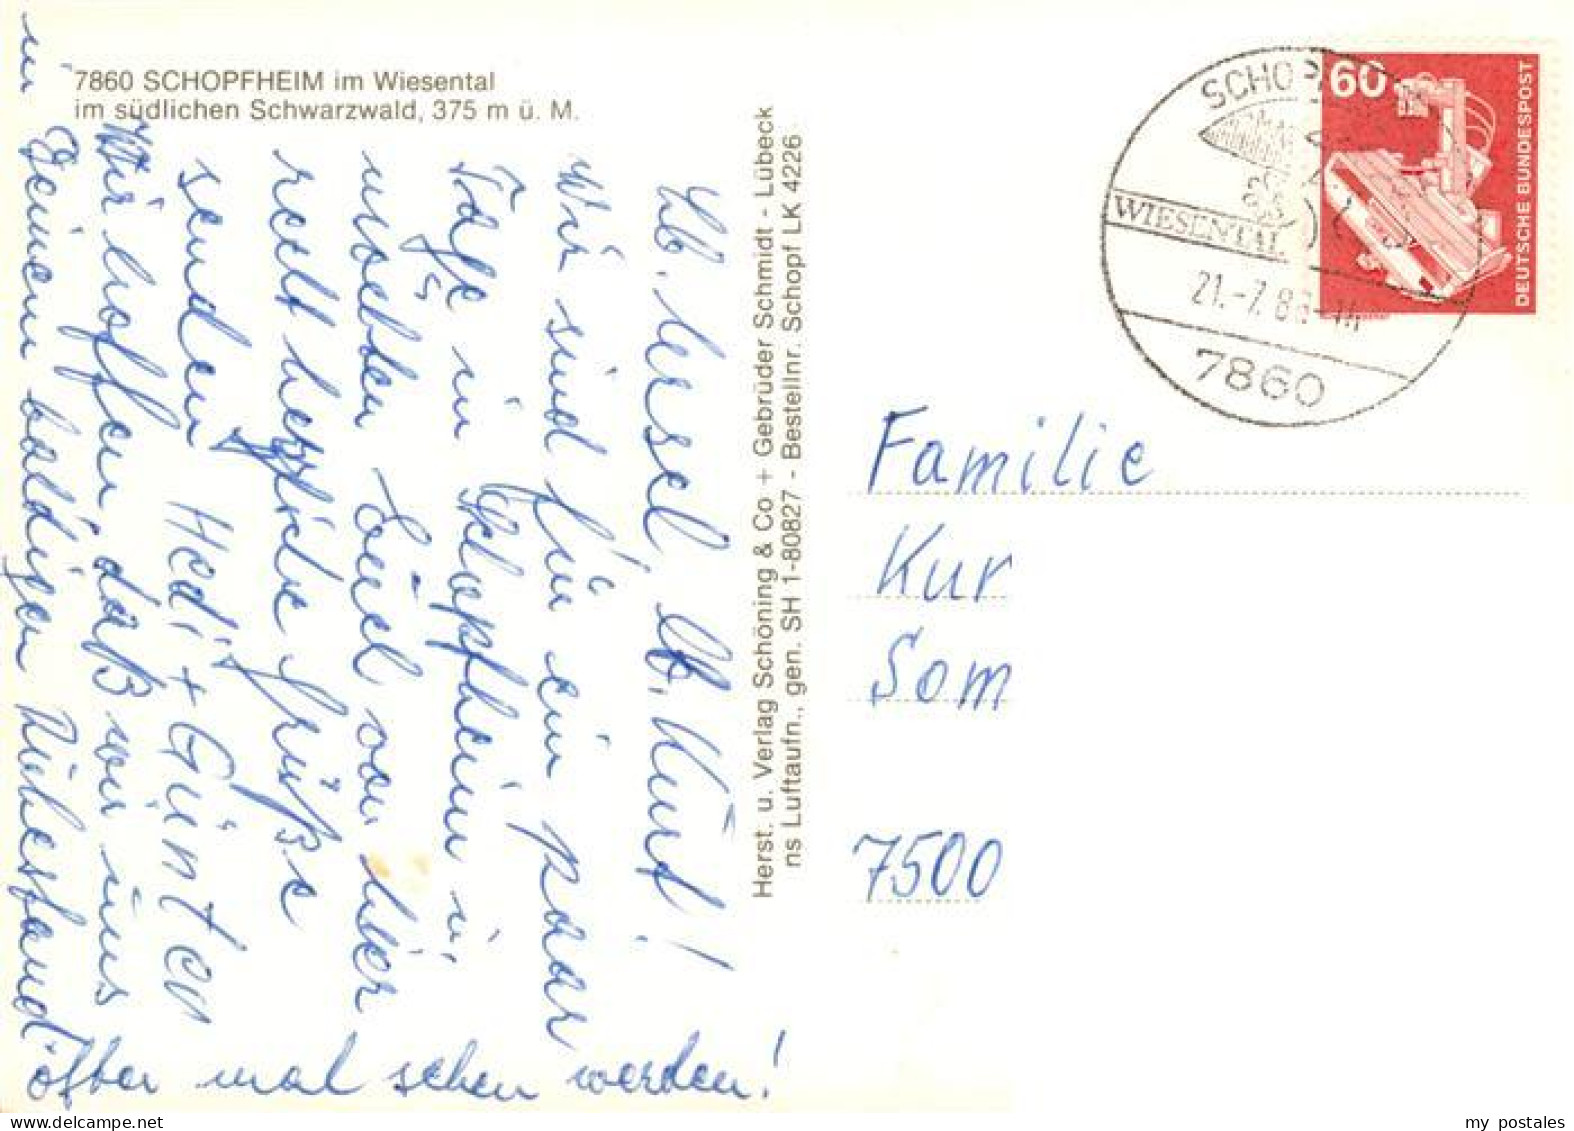 7860 SCHOPFHEIM im Wiesental
im südlichen Schwarzwald, 375 m ü. M.
Lb. Ursel, lb. Kurt!
Wir sind für ein paar
Tage in Schopfheim u.
möchten Euch von hier
recht herzliche Grüße
senden
Hedi + Günter
Wir hoffen, daß wir uns
in Deinem baldigen Ruhestand
öfter mal sehen werden!
Herst. u. Verlag Schöning & Co + Gebrüder Schmidt - Lübeck
ns Luftaufn., gen. SH 1-80827 - Bestellnr. Schopf LK 4226
SCHOP
WIESENTAL
21.-7.8
7860
60
DEUTSCHE BUNDESPOST
Familie
Kur
Som
7500
my postales